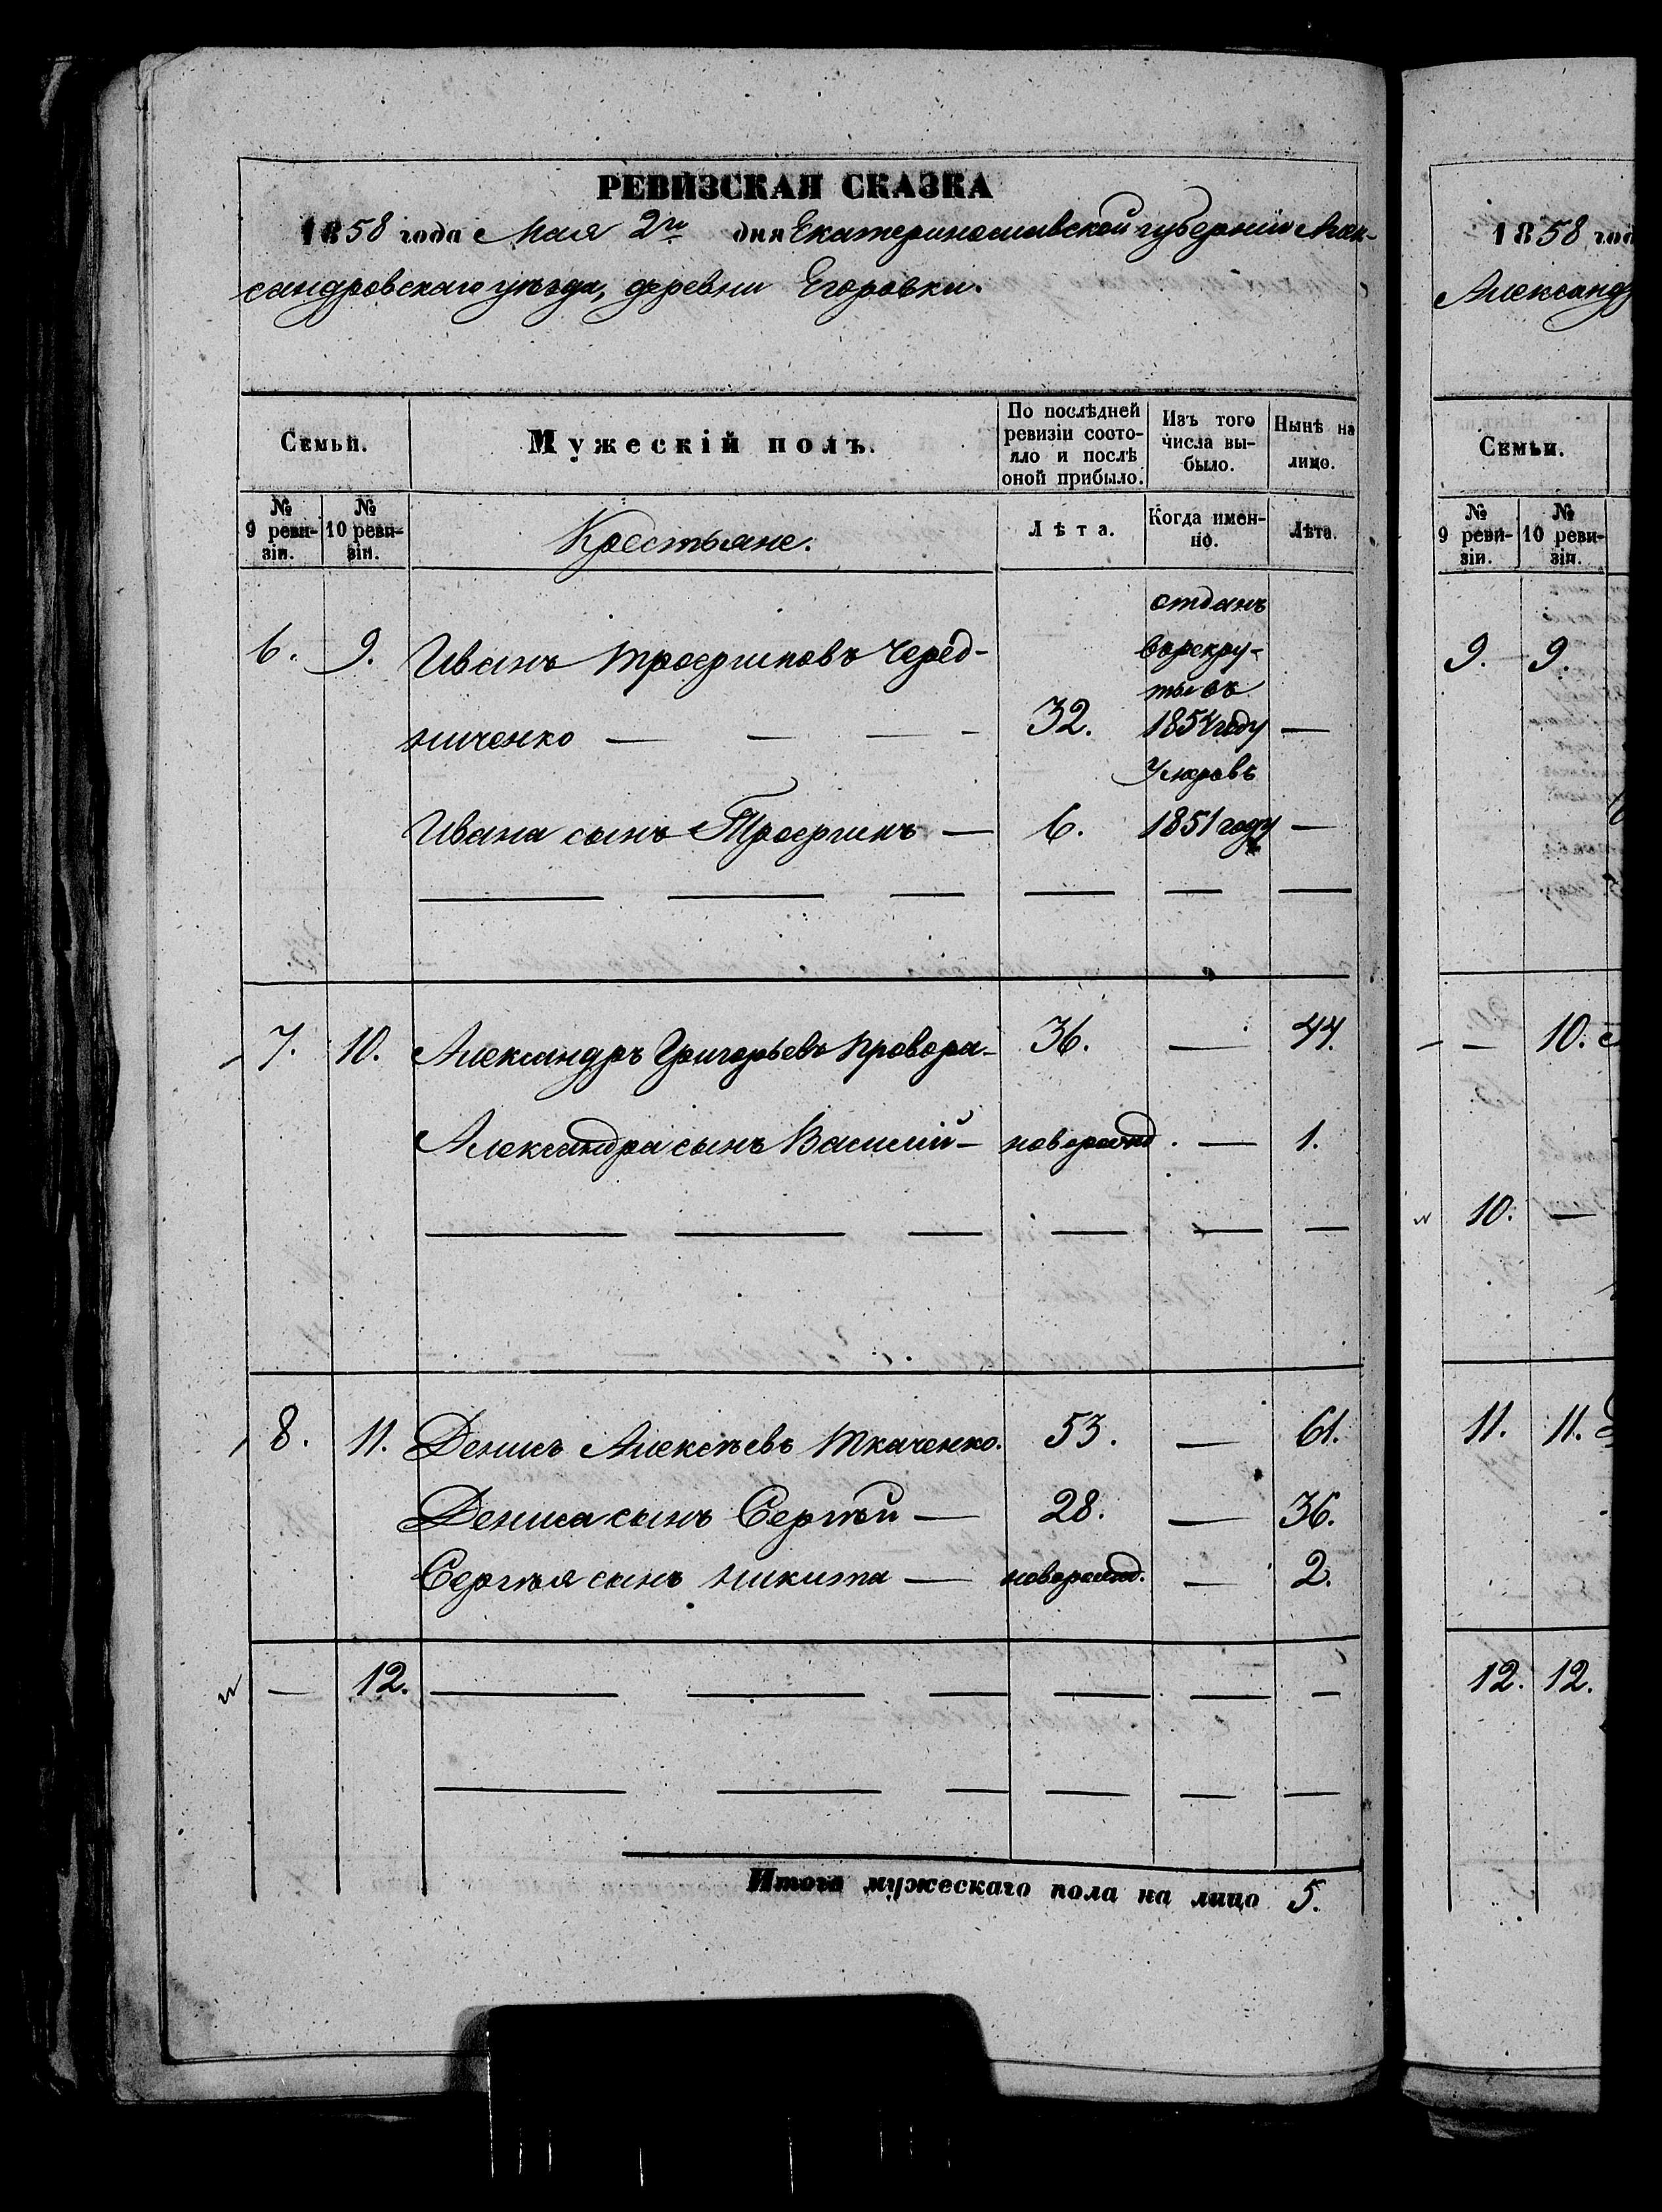 РЕВИЗСКАЯ СКАЗКА
1858 года Мая 2го дня Екатеринославской губернии Алек-
сандровскаго уѣзда, деревни Егоровки.
Семьи.
Мужескій полъ.
По послѣдней ревизіи состо-яло и послѣ оной прибыло.
Изъ того числа вы-было.
Нынѣ на лицо.
№ 9 реви-зіи.
№ 10 реви-зіи.
Крестьяне.
Лѣта.
Когда имен-но.
Лѣта.
отданъ
6. 9. Иванъ Трофимовъ Черед-
в рекру-
ты въ
ниченко — — — - 32. 1854 году —
Умеръ въ
Ивана сынъ Трофимъ — 6. 1851 году —
— — — — — —
7. 10. Александръ Григорьевъ Провора- 36. — 44.
Александра сынъ Василий — новорожд. — 1.
— — — — — —
8. 11. Денисъ Алексѣевъ Ткаченко. 53. — 61.
Дениса сынъ Сергѣй — 28. — 36.
Сергѣя сынъ Никита — новорожд. — 2.
— 12. — — — — — —
— — — — — —
Итого мужескаго пола на лицо 5.
1858 год
Александ
Семьи.
№ 9 реви-зіи.
№ 10 реви-зіи.
9. 9.
— 10.
10. —
11. 11.
12. 12.